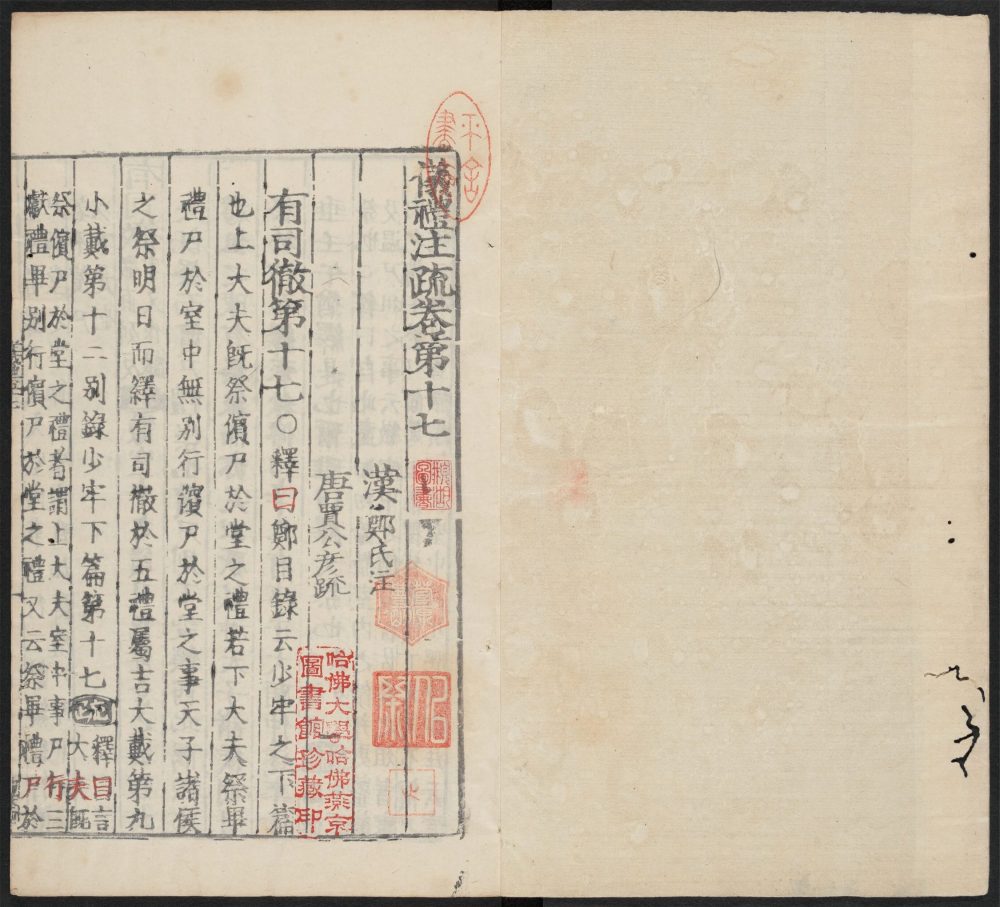 儀禮注疏卷第十七
漢鄭氏注
唐賈公彥疏
有司徹第十七〇釋曰鄭目錄云少牢之下篇
也上大夫既祭儐尸於堂之禮若下大夫祭畢
禮尸於室中無別行儐尸於堂之事天子諸侯
之祭明日而繹有司徹於五禮屬吉大戴第九
小戴第十二別錄少牢下篇第十七疏釋曰言
大夫既
祭儐尸於堂之禮者謂上大夫室中事尸行三
獻禮畢別行儐尸於堂之禮又云祭畢禮尸於
哈佛大學哈佛燕京
圖書館珍藏印